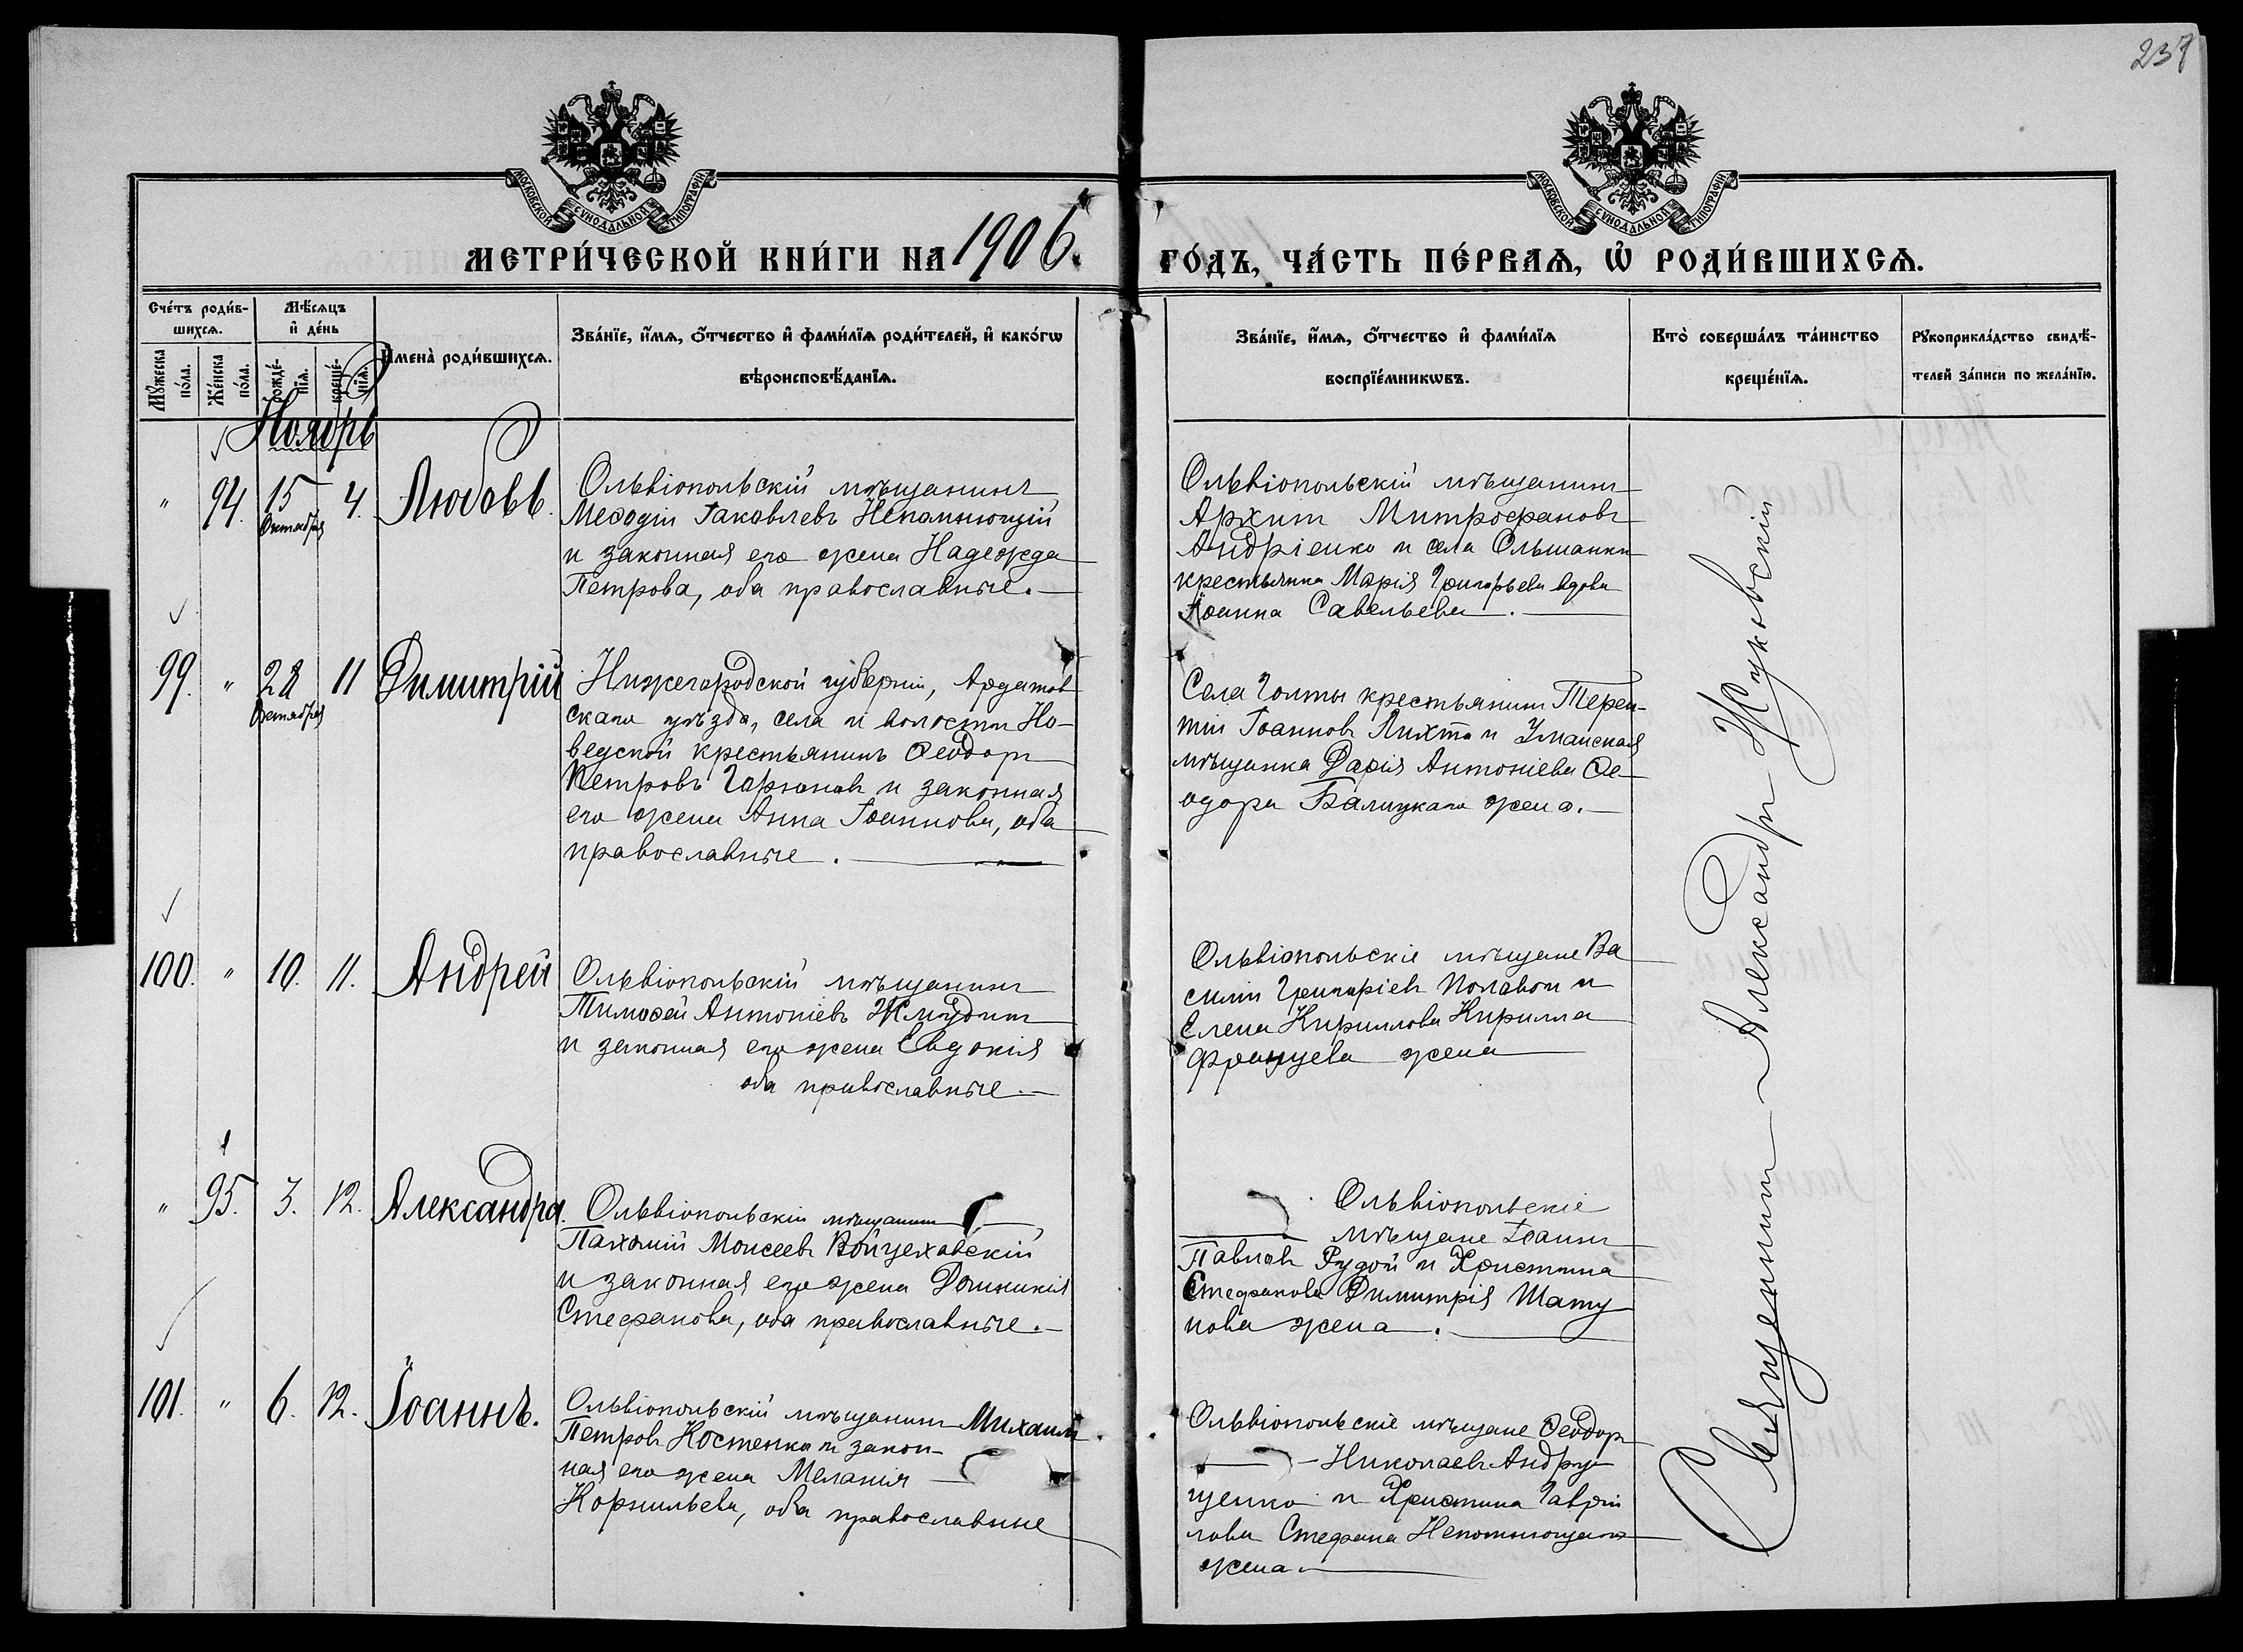 237
МОСКОВСКОЙ СѴНОДАЛЬНОЙ ТИПОГРАФІИ
МОСКОВСКОЙ СѴНОДАЛЬНОЙ ТИПОГРАФІИ
МЕТРИ́ЧЕСКОЙ КНИ́ГИ НА 1906.
ГО́ДЪ, ЧА́СТЬ ПЕ́РВАѦ, Ѽ РОДИ́ВШИХСѦ.
Сче́тъ роди́в-
шихсѧ.
Мѣ́сѧцъ
и҆ де́нь
Мꙋ́жеска по́ла.
Же́нска по́ла.
рожде́-нїѧ.
креще́-нїѧ.
И҆мена̀ роди́вшихсѧ.
Зва́нїе, и҆́мѧ, ѻ҆́тчество и҆ фами́лїѧ роди́телей, и҆ како́гѡ
вѣроисповѣ́данїѧ.
Зва́нїе, и҆́мѧ, ѻ҆́тчество и҆ фами́лїѧ
воспрїе́мникѡвъ.
Кто̀ соверша́лъ та́инство
креще́нїѧ.
Рꙋкоприкла́дство свидѣ́-
телей за́писи по жела́нїю.
Ноябрь
" 94. 15 Октября 4. Любовь.
Ольвіопольскій мѣщанинъ
Меѳодій Іаковлевъ Непомнющій
и законная его жена Надежда
Петрова, оба православные.
Ольвіопольскій мѣщанинъ
Архип Митрофановъ
Андріенко и села Ольшанки
крестьянка Марія Григорьева вдова
Іоанна Савельева.
99. " 28 Октября 11 Димитрій
Нижегородской губерніи, Ардатов
скаго уѣзда, села и волости Но-
ведской крестьянинъ Ѳеодоръ
Петровъ Гарюновъ и законная
его жена Анна Іоаннова, оба
православные.
Села Голты крестьянинъ Терен-
тій Іоанновъ Лихта и Уманская
мѣщанка Дарія Антоніева Ѳе-
одора Балицкаго жена.
100. " 10. 11. Андрей
Ольвіопольскій мѣщанинъ
Тимоѳей Антоніевъ Жмудинъ
и законная его жена Евдокія
оба православные.
Ольвіопольскіе мѣщане Ва
силій Григоріевъ Полавон и
Елена Кириллова Кирилла
Францева жена
" 95. 3. 12. Александра.
Ольвіопольскій мѣщанинъ
Пахомій Моисеевъ Войцеховскій
и законная его жена Домникія
Стефанова, оба православные.
Ольвіопольскіе
мѣщане Іоаннъ
Павловъ Рудой и Христина
Стефанова Димитрія Шату
нова жена.
101. " 6. 12. Іоаннъ.
Ольвіопольскій мѣщанинъ Михаилъ
Петровъ Костенко и закон-
ная его жена Меланія
Корнильева, оба православные
Ольвіопольскіе мѣщане Ѳеодоръ
Николаевъ Андру-
щенко и Христина Гаврі
лова Стефана Непомнющаго
жена.
Священникъ Александръ Жуковскій